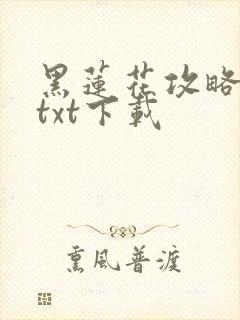 黑蓮花攻略
txt下載
熏風普渡